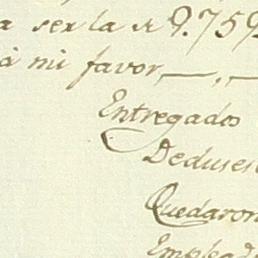 a ser la R 9.759
à mi favor,—,—
Entregados
Deduses
Quedaron
Emplead